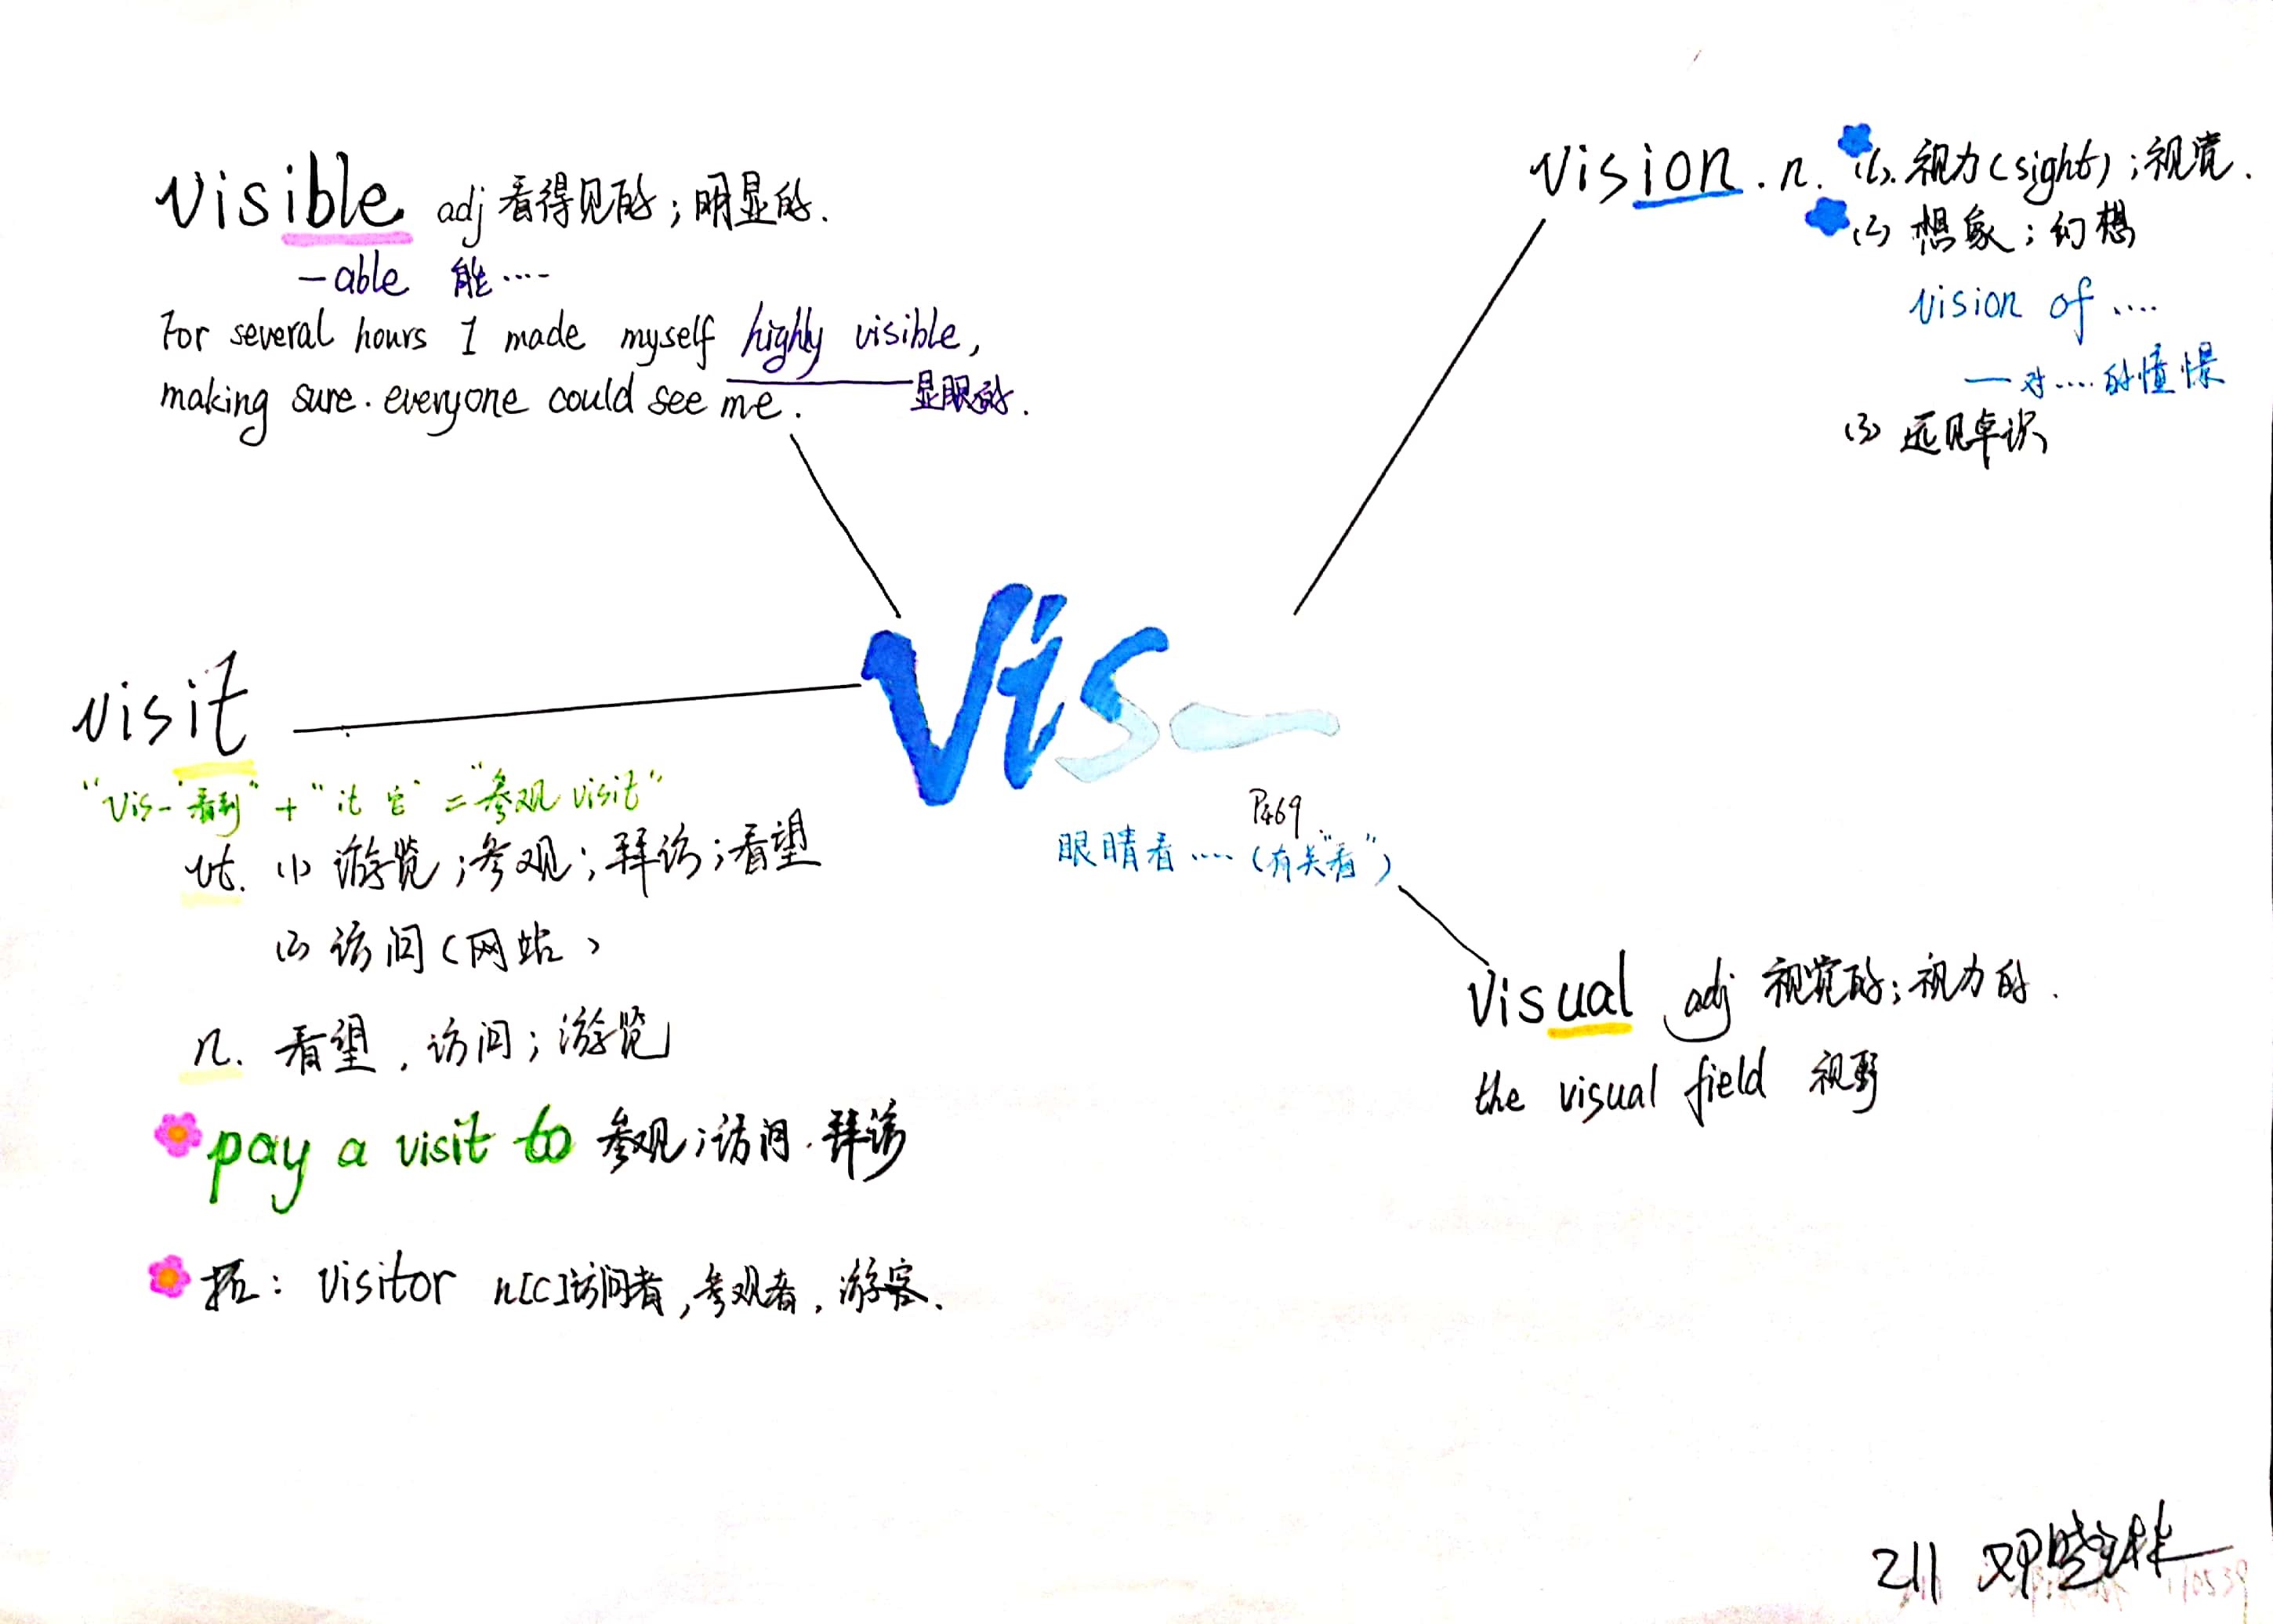 visible adj 看得见的；明显的.
-able 能····
For several hours I made myself highly visible,
making sure. everyone could see me.
显眼的.
vision. n. (1). 视力(sight)；视觉.
(2) 想象；幻想
vision of ····
—对····的憧憬
(3) 远见卓识
Vis-
P469
眼睛看····(有关"看")
visit
"Vis-看到"+"it 它"="参观visit"
vt. (1) 游览；参观；拜访；看望
(2) 访问(网站)
n. 看望，访问；游览
pay a visit to 参观；访问.拜访
拓: visitor n[C]访问者,参观者,游客.
visual adj 视觉的；视力的.
the visual field 视野
211